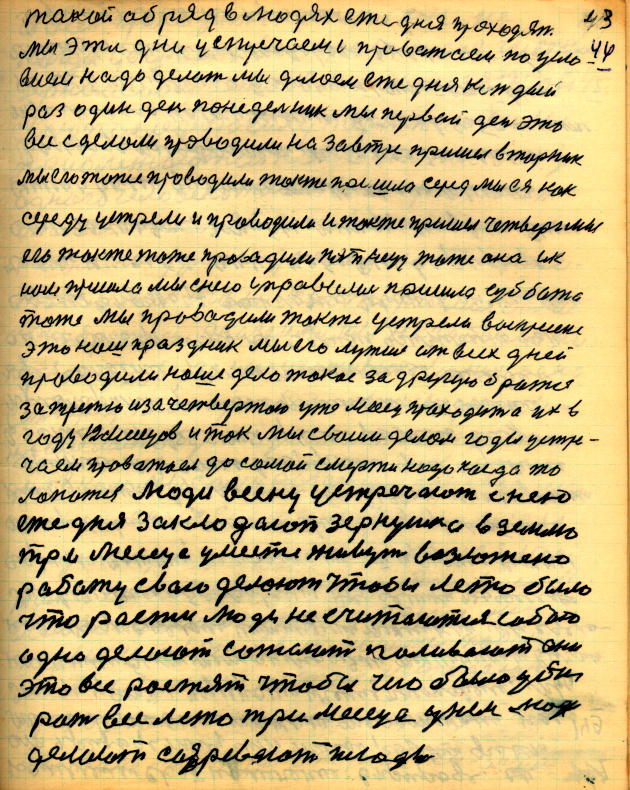 такой обряд в людях еже дня проходят. 43
мы эти дни устречаем и проважаем по усло- 44
вием надо делат мы делаем еже дня каждый
раз один ден понеделник мы первай ден это
все сделали проводили на завтре пришел вторник
мы его тоже проводили также пришла серед мы ся как
среду устрели и проводили и также пришел четверг мы
его также тоже провадили пятнецу тоже она к
нам пришла мы с него управели пришла суббота
тоже мы провадили также устрели васкрисене
это наш праздник мы его лутше от всех дней
проводили наше дело такое за другую братся
за третью и за четвертою уже месец праходит а их в
году 12 месецов и так мы своим делом годы устре-
чаем проважаем до самой смерти надо когда то
лопатся люди весну устречают с нею
еже дня закладают зернушка в землю
три месеца уместе живут возложено
работу сваю делают чтобы лето было
что растит люди не считаются с собою
одно делают сожают и поливают они
это все растят чтобы чего было уби
рат все лето три месеца днем люди
делают созревают плоды